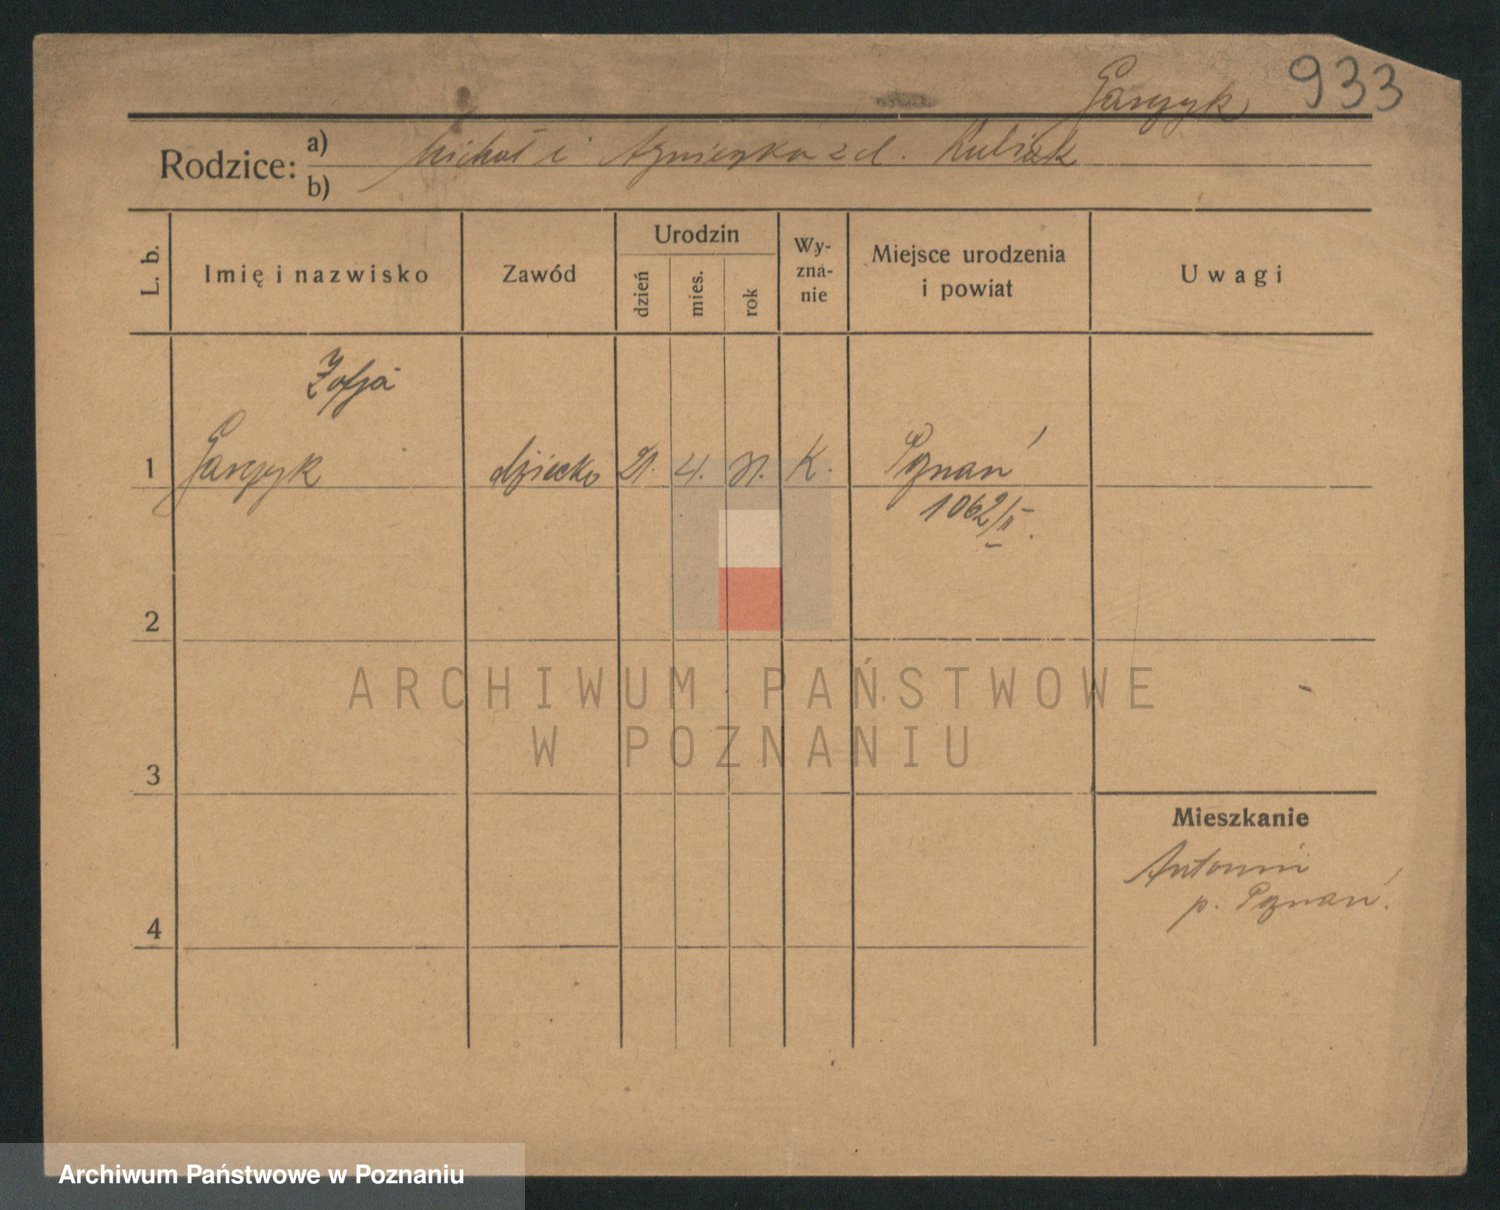 Garczyk 933
Rodzice: a) Michał i Agnieszka z d. Kubiak
b)
L. b. Imię i nazwisko Zawód Urodzin dzień mies. rok Wy-zna-nie Miejsce urodzenia i powiat Uwagi
Zofja
1 Garczyk dziecko 21. 4. 31. K. Poznań
1062/II.
2
ARCHIWUM PAŃSTWOWE
W POZNANIU
3
Mieszkanie
Antonin
p. Poznań.
4
Archiwum Państwowe w Poznaniu